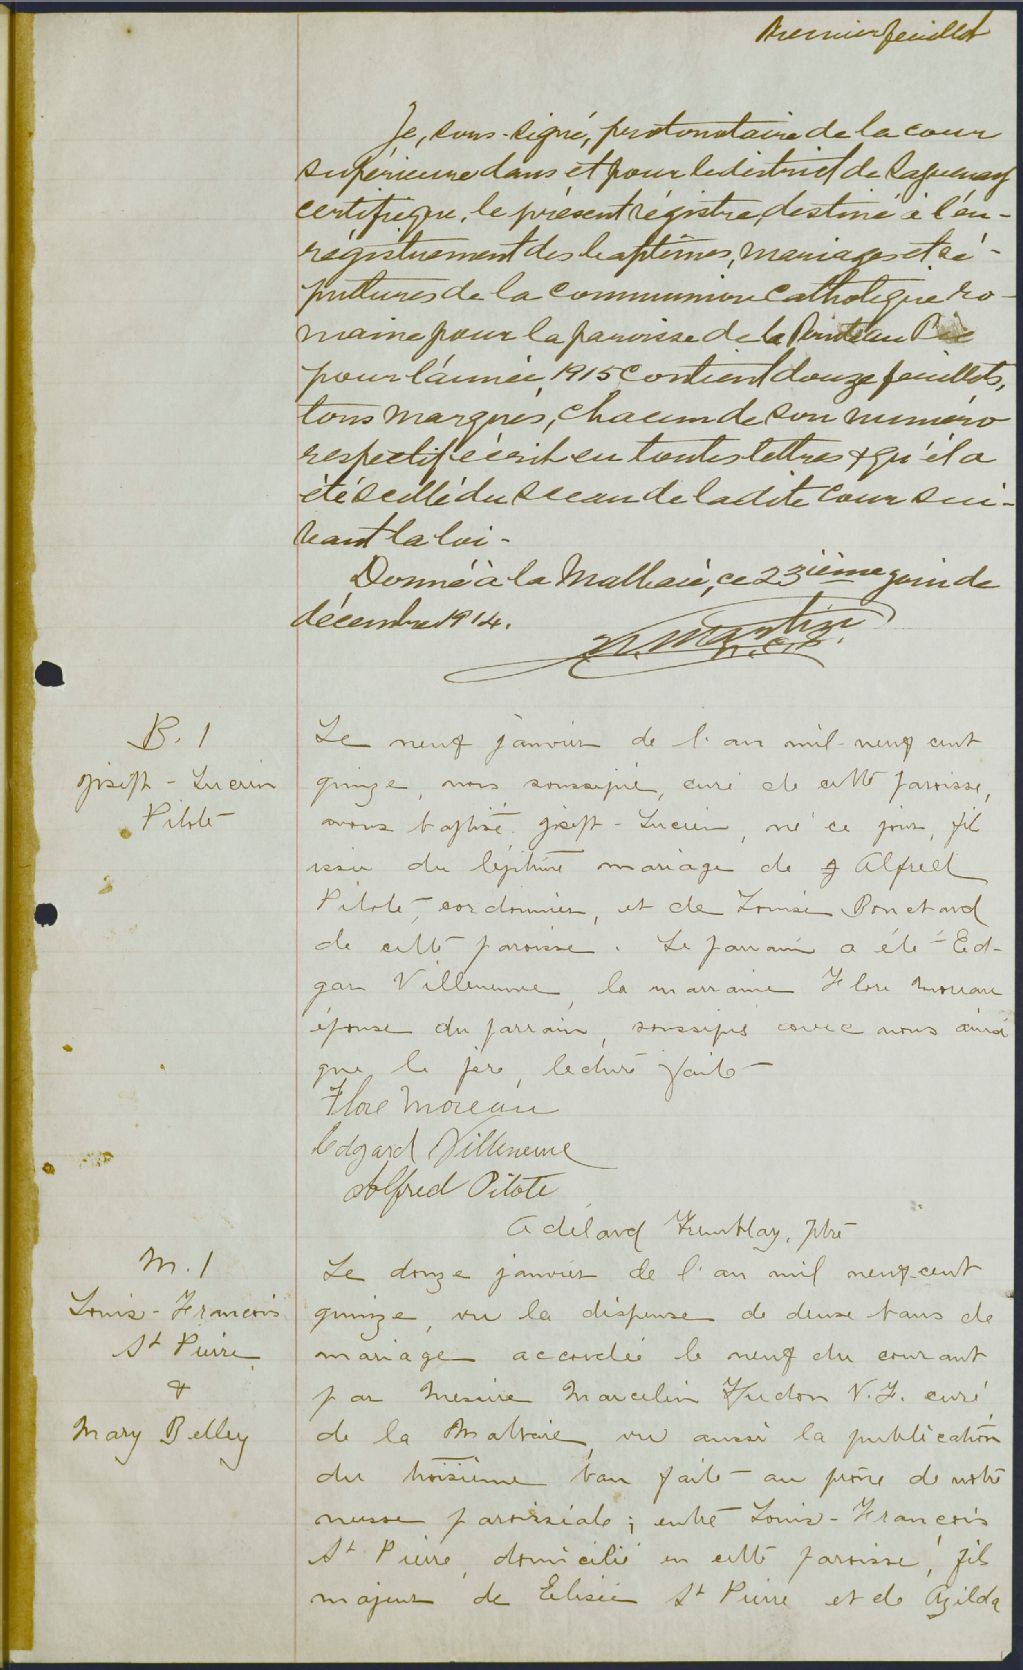 Premier feuillet
Je, sous-signé, protonotaire de la cour
supérieure dans et pour le district de Saguenay
certifie que, le présent régistre, destiné à l'en-
régistrement des baptêmes, mariages et sé-
pultures de la communion catholique ro-
maine pour la paroisse de la Pointe au Pic
pour l'année 1915 contient douze feuillets,
tous marqués, chacun de son numéro
respectif écrit en toutes lettres & qu'il a
été scellé du sceau de la dite Cour sui-
vant la loi -
Donné à la Malbaie, ce 23ième jour de
décembre 1914.
Martin
B. 1
Joseph - Lucien
Pilote
Le neuf janvier de l'an mil-neuf cent
quinze, nous soussigné, curé de cette paroisse,
avons baptisé Joseph-Lucien, né ce jour, fil
issu du légitime mariage de Alfred
Pilote, cordonnier, et de Louise Bouchard
de cette paroisse. Le parrain a été Ed-
gar Villeneuve, la marraine Flore Moreau
épouse du parrain, soussignés avec nous ainsi
que le père, lecture faite -
Flore Moreau
Edgard Villeneuve
Alfred Pilote
Adélard Tremblay, ptre
M. 1
Louis-François
St Pierre
&
Mary Belley
Le douze janvier de l'an mil neuf-cent
quinze, vu la dispense de deux bans de
mariage accordée le neuf du courant
par Messire Marcelin Hudon V.F. curé
de la Malbaie, vu aussi la publication
du troisième ban faite au prône de notre
messe paroissiale; entre Louis-François
St Pierre, domicilié en cette paroisse, fils
majeur de Elisée St Pierre et de Azilda